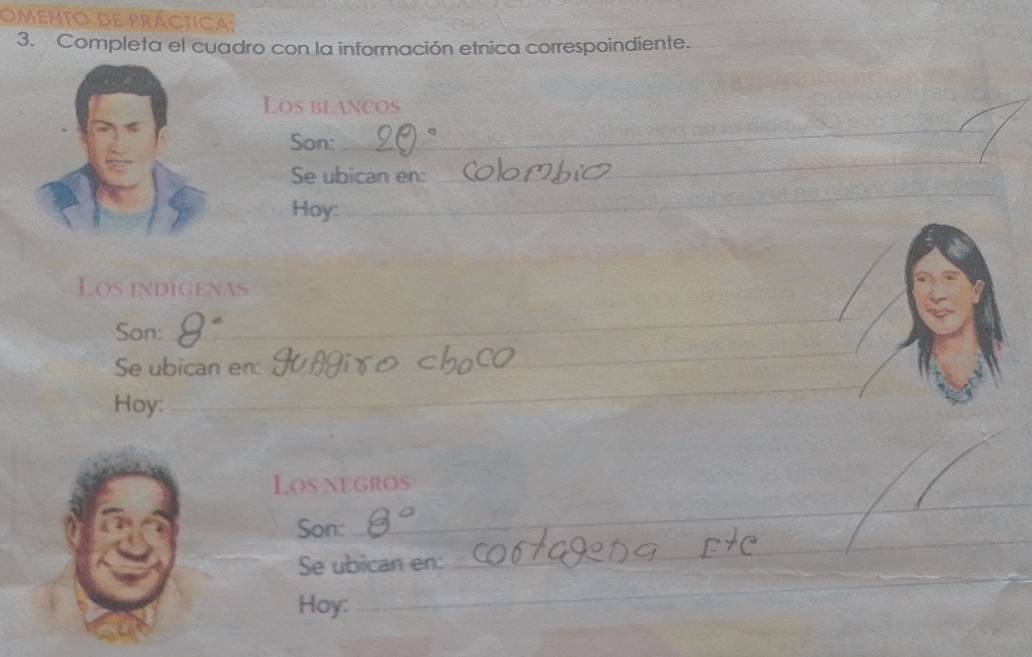 OMENTO DE PRÁCTICA:
3. Completa el cuadro con la información etnica correspoindiente.
LOS BLANCOS
Son: 20°
Se ubican en: Colombio
Hoy:
LOS INDÍGENAS
Son: 8°
Se ubican en: guagiro choco
Hoy:
LOS NEGROS
Son: 8°
Se ubican en: cortagena Etc
Hoy: